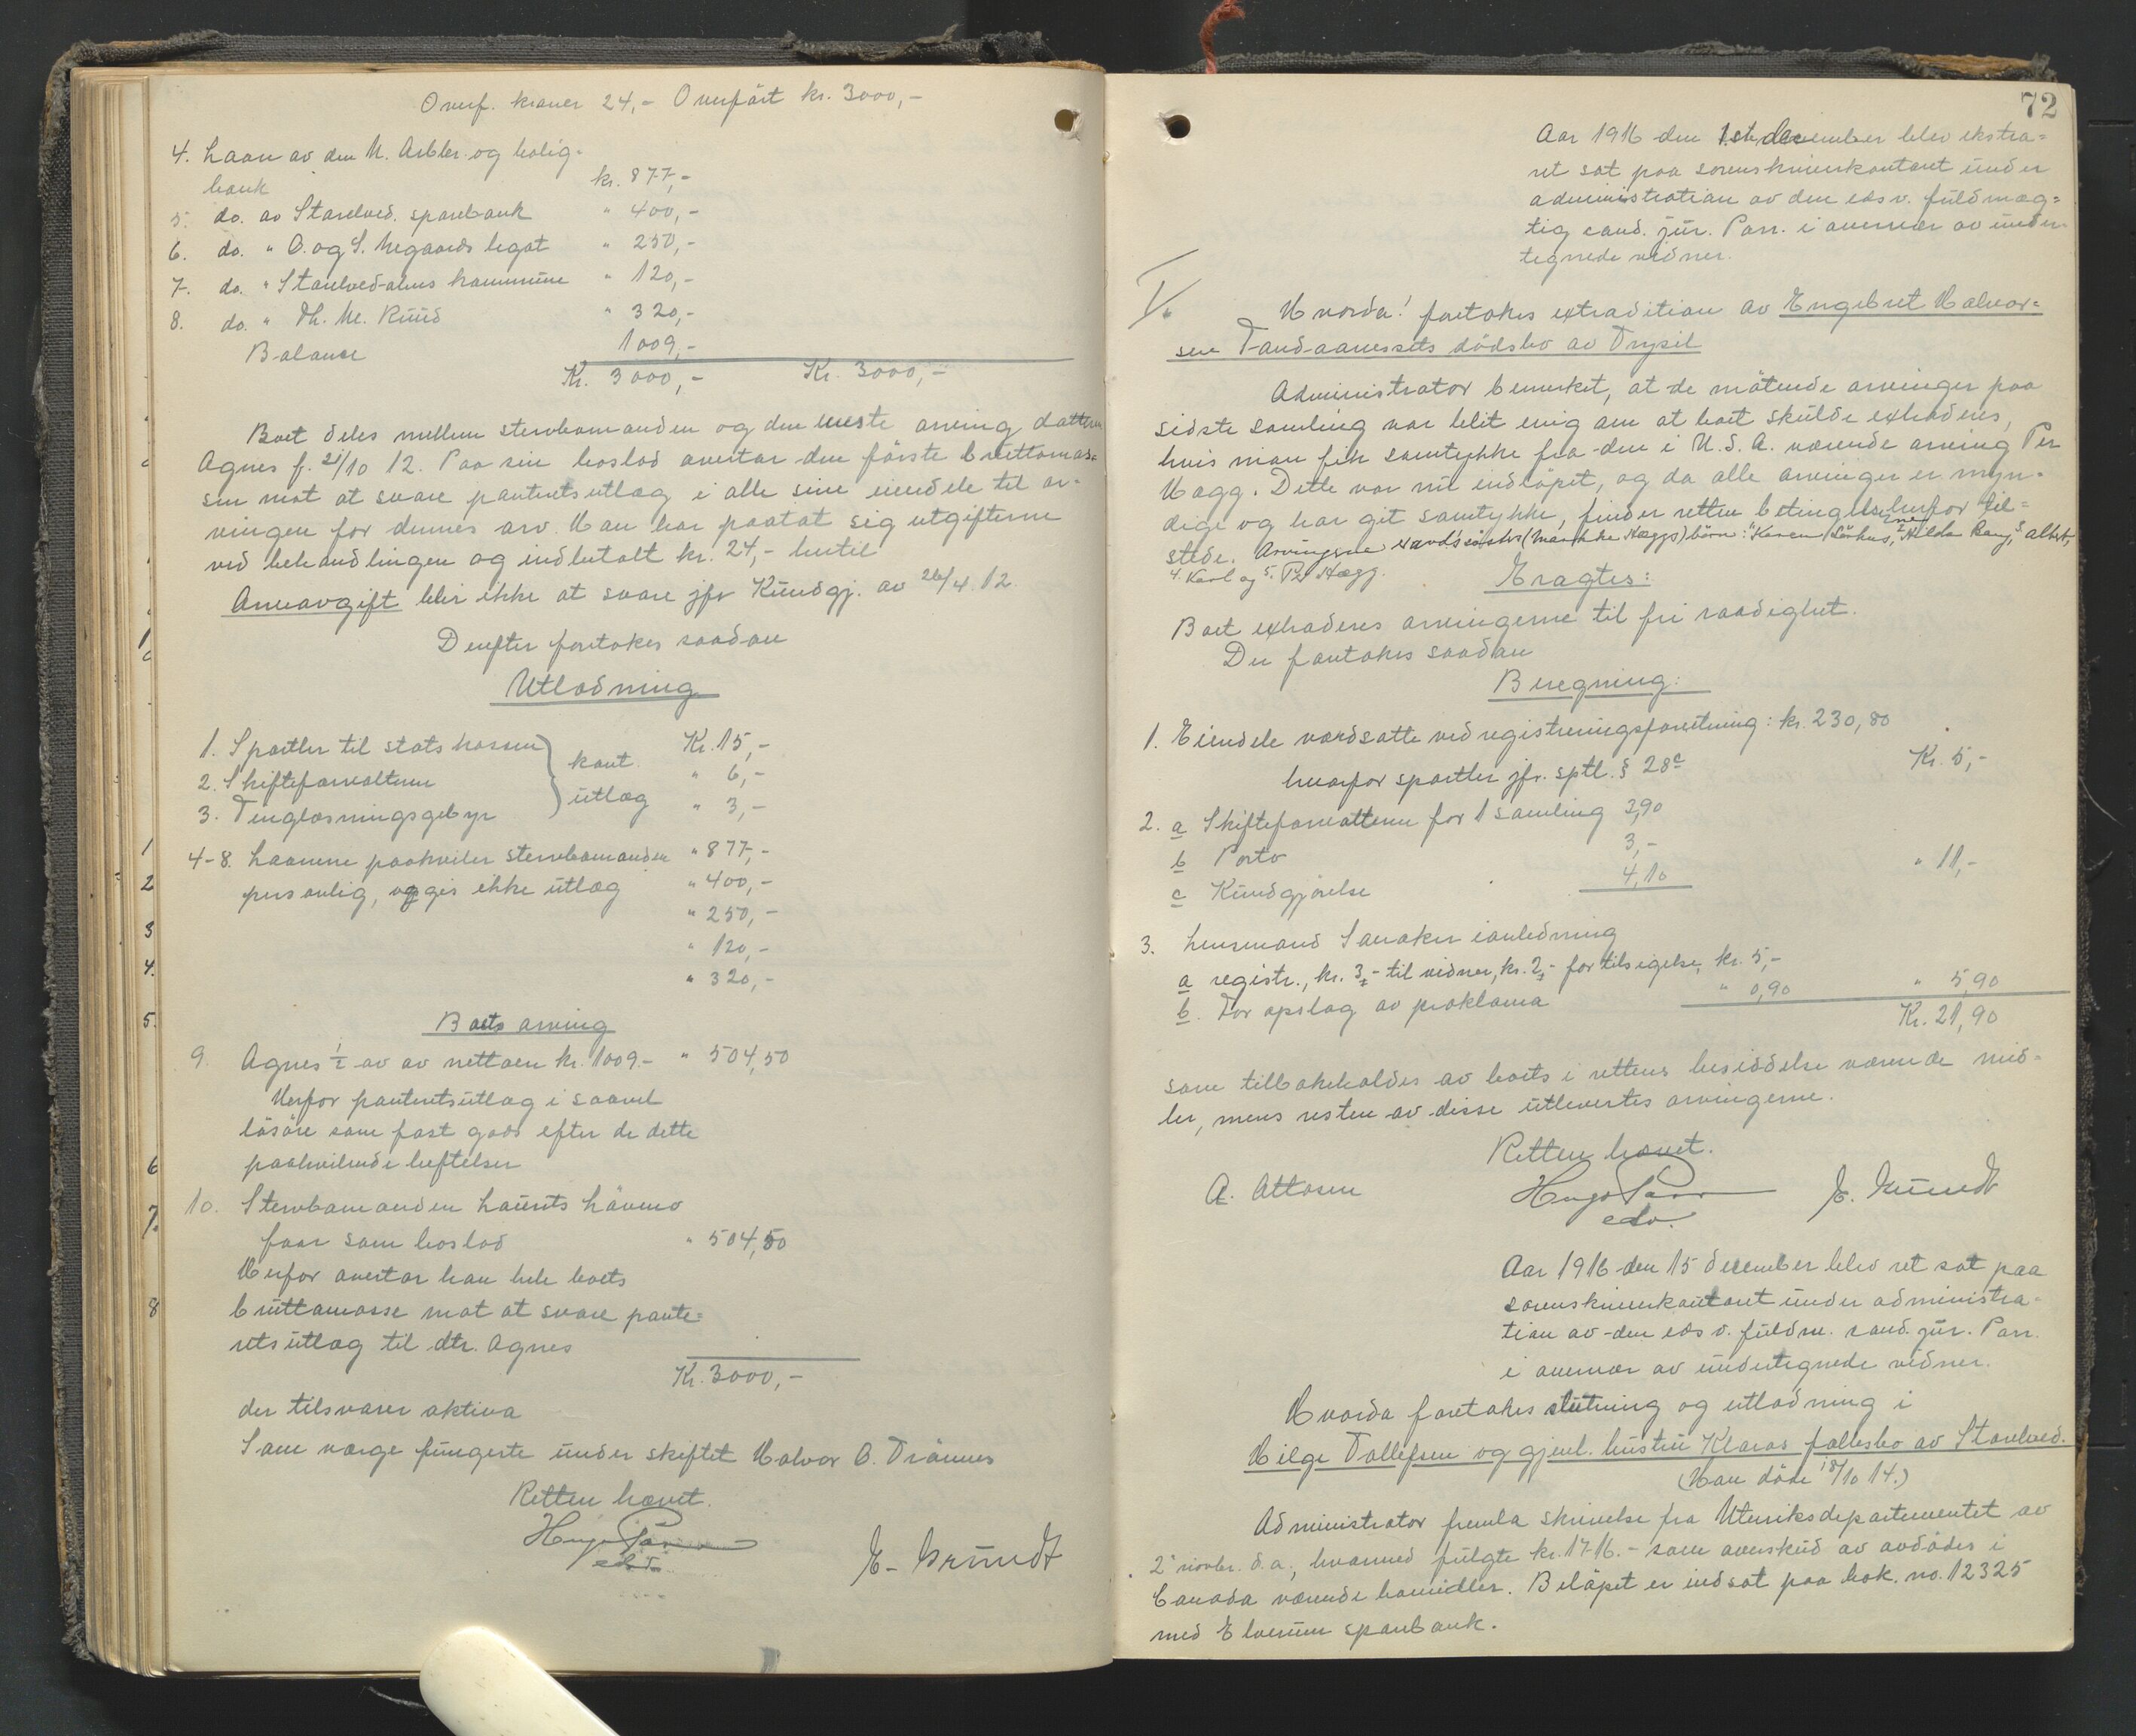 Overf. kroner 24,- Overført kr. 3000,-
4. Laan av den N. Arbker. og bolig-
bank kr. 877,-
5. do. av Starelved. sparebank " 400,-
6. do. " O. og S. Negaards legat " 250,-
7. do. " Starelved-alens kommune " 120,-
8. do. " Th. M. Ruud " 320,-
Balance 1009,-
Kr. 3000,- Kr. 3000,-
Boet deles mellem stervbomanden og den eneste arving datteren
Agnes f. 21/10 12. Paa sin boslod overtar den første bruttomas-
sen mot at svare panteretsutlæg i alle sine eiendele til ar-
vingen for dennes arv. Han har paatat sig utgifterne
ved behandlingen og indbetalt kr. 24,- hertil
Arveavgift blir ikke at svare jfr Kundgj. av 26/4. 12.
Derefter foretokes saadan
Utlodning
1. Sportler til statskassen Kr. 15,-
2. Skifteforvalteren } kont. utlæg " 6,-
3. Tinglæsningsgebyr " 3,-
4-8. Laanene paahviler stervbomanden " 877,-
personlig, og gis ikke utlæg " 400,-
" 250,-
" 120,-
" 320,-
Boets arving
9. Agnes ½ av av nettoen kr. 1009.- " 504,50
Herfor panteretsutlæg i saavel
løsøre som fast gods efter de dette
paahvilende heftelser
10. Stervbomanden Laurits Løvmo
faar som boslod " 504,50
Herfor overtar han hele boets
bruttomasse mot at svare pante-
retsutlæg til dtr. Agnes
Kr. 3000,-
der tilsvarer aktiva
Som værge fungerte under skiftet Halvor O. Trønnes
Retten hævet.
Hugo Parr
edsv.
E. Grundt
72
Aar 1916 den 1ste december blev ekstra-
ret sat paa sorenskriverkontoret under
administration av den edsv. fuldmæg-
tig cand. jur. Parr. i overvær av under-
tegnede vidner.
Hvorda! foretokes extradition av Engebret Halvor-
sen Tandaanessets dødsbo av Trysil
Administrator bemerket, at de møtende arvinger paa
sidste samling var blit enig om at boet skulde extraderes,
hvis man fik samtykke fra den i U.S.A. værende arving Per
Hagg. Dette var nu indløpet, og da alle arvinger er myn-
dige og har git samtykke, finder retten betingelserne herfor til-
stede. Arvingerne er avd's søsters (Marthe Hæggs) børn: 1. Karen Lørhus, 2. Hilda Rang, 3. Albert,
4. Karl og 5. Per Hægg.
Eragtes:
Boet extraderes arvingerne til fri raadighet.
Der foretokes saadan
Beregning:
1. Eiendele værdsatte ved registreringsforretning: kr. 230,80
hvorfor sportler jfr. sptl. § 28 c Kr. 5,-
2. a Skifteforvalteren for 1 samling 3,90
b Porto 3,-
c Kundgjørelse 4,10 " 11,-
3. Lensmand Sanaker i anledning
a registr., kr. 3,- til vidner, kr. 2,- for tilsigelse, kr. 5,-
b. For opslag av proklama " 0,90 " 5,90
Kr. 21,90
som tilbakeholdes av boets i rettens besiddelse værende mid-
ler, mens resten av disse utlevertes arvingerne.
Retten hævet.
A. Ottosen Hugo Parr E. Grundt
edsv.
Aar 1916 den 15 december blev ret sat paa
sorenskriverkontoret under administra-
tion av den eds v. fuldm. cand. jur. Parr.
i overvær av undertegnede vidner.
Hvorda foretokes slutning og utlodning i
Helge Tollefsen og gjenl. hustru Klaras fællesbo av Starelved.
(Han døde 18/10 14.)
Administrator fremla skrivelse fra Utenriksdepartementet av
2 novbr. d.a., hvormed fulgte kr. 1716.- som overskud av avdødes i
Canada værende bomidler. Beløpet er indsat paa bok. no. 12325
med Elverum sparebank.